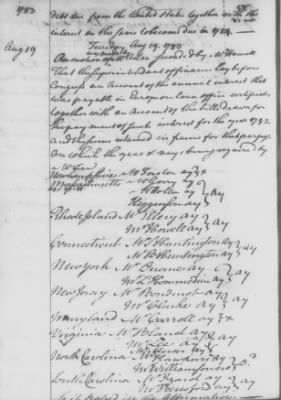 1783
debt due from the United States together with the
interest on the same to become due in 1784.
Aug 19
Tuesday Aug. 19. 1783
On motion of Mr Lee seconded by Mr Howell
That the Superintendant of finance lay before
Congress an Account of the annual interest that
was payable in Europe on loan office certificates
together with an Account of the bills drawn for
the payment of such interest for the year 1782
and the sums retained in france for that purpose
on which the yeas & nays being required by
Mr Lee
New hampshire Mr Foster ay
Massachusetts
Mr Holten ay
Higginson ay
Rhode Island Mr Ellery ay
Mr Howell ay } ay
Connecticut Mr S Huntington ay
Mr B Huntington ay } ay
New York Mr Duane ay
Mr L Hommedieu ay } ay
New Jersey Mr Boudinot ay
Mr Clarke ay } ay
Maryland Mr Carroll ay
Virginia Mr Bland ay
Mr Lee ay } ay
North Carolina Mr Hawkins ay
Mr Williamson
South Carolina Mr Read ay
Mr Beresford ay } ay
So it passed in the affirmative